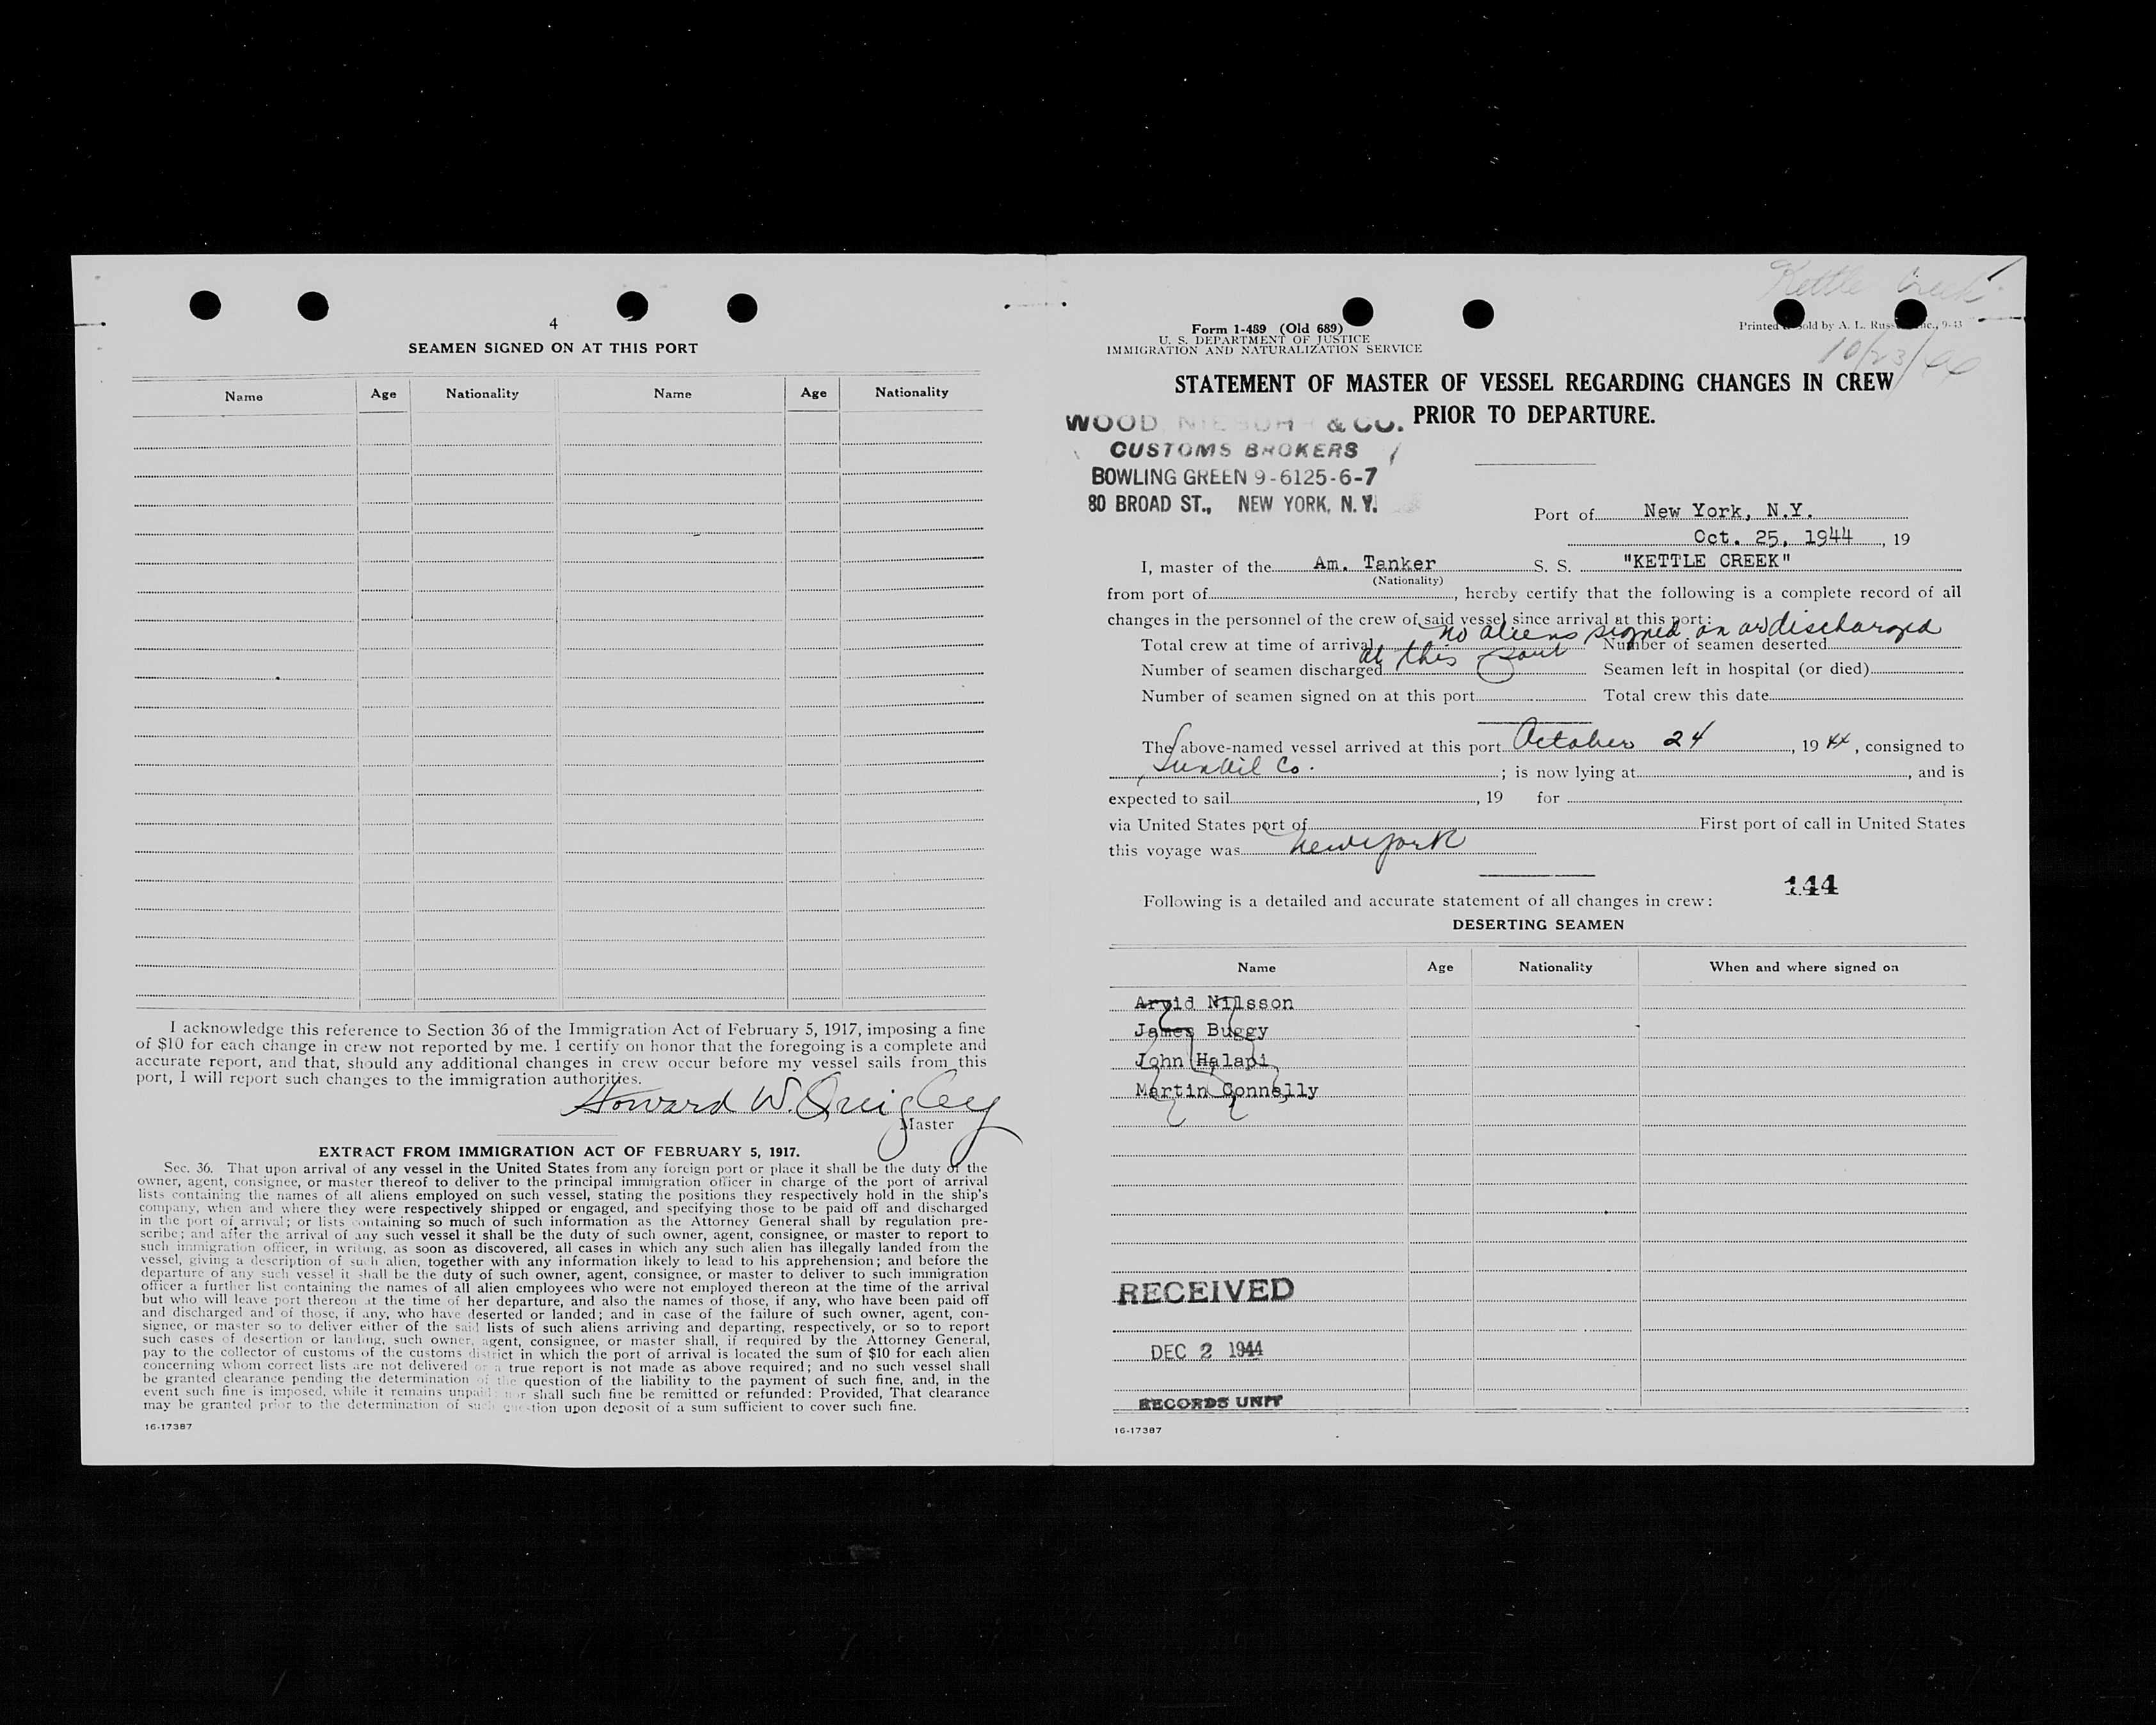 4
SEAMEN SIGNED ON AT THIS PORT
Name Age Nationality Name Age Nationality
I acknowledge this reference to Section 36 of the Immigration Act of February 5, 1917, imposing a fine
of $10 for each change in crew not reported by me. I certify on honor that the foregoing is a complete and
accurate report, and that, should any additional changes in crew occur before my vessel sails from this
port, I will report such changes to the immigration authorities.
Howard W. Quigley
Master
EXTRACT FROM IMMIGRATION ACT OF FEBRUARY 5, 1917.
Sec. 36. That upon arrival of any vessel in the United States from any foreign port or place it shall be the duty of the
owner, agent, consignee, or master thereof to deliver to the principal immigration officer in charge of the port of arrival
lists containing the names of all aliens employed on such vessel, stating the positions they respectively hold in the ship's
company, when and where they were respectively shipped or engaged, and specifying those to be paid off and discharged
in the port of arrival; or lists containing so much of such information as the Attorney General shall by regulation pre-
scribe; and after the arrival of any such vessel it shall be the duty of such owner, agent, consignee, or master to report to
such immigration officer, in writing, as soon as discovered, all cases in which any such alien has illegally landed from the
vessel, giving a description of such alien, together with any information likely to lead to his apprehension; and before the
departure of any such vessel it shall be the duty of such owner, agent, consignee, or master to deliver to such immigration
officer a further list containing the names of all alien employees who were not employed thereon at the time of the arrival
but who will leave port thereon at the time of her departure, and also the names of those, if any, who have been paid off
and discharged and of those, if any, who have deserted or landed; and in case of the failure of such owner, agent, con-
signee, or master so to deliver either of the said lists of such aliens arriving and departing, respectively, or so to report
such cases of desertion or landing, such owner, agent, consignee, or master shall, if required by the Attorney General,
pay to the collector of customs of the customs district in which the port of arrival is located the sum of $10 for each alien
concerning whom correct lists are not delivered or a true report is not made as above required; and no such vessel shall
be granted clearance pending the determination of the question of the liability to the payment of such fine, and, in the
event such fine is imposed, while it remains unpaid; nor shall such fine be remitted or refunded: Provided, That clearance
may be granted prior to the determination of such question upon deposit of a sum sufficient to cover such fine.
16-17387
Kettle Creek
Form 1-489 (Old 689)
U. S. DEPARTMENT OF JUSTICE
IMMIGRATION AND NATURALIZATION SERVICE
Printed sold by A. L. Inc., 9-43
10/23/44
STATEMENT OF MASTER OF VESSEL REGARDING CHANGES IN CREW
PRIOR TO DEPARTURE.
WOOD, & CO.
CUSTOMS BROKERS
BOWLING GREEN 9-6125-6-7
80 BROAD ST., NEW YORK, N.Y.
Port of New York, N.Y.
Oct. 25, 1944, 19
I, master of the Am. Tanker S. S. "KETTLE CREEK"
(Nationality)
from port of , hereby certify that the following is a complete record of all
changes in the personnel of the crew of said vessel since arrival at this port:
no aliens signed on or discharged
Total crew at time of arrival Number of seamen deserted
at this port
Number of seamen discharged Seamen left in hospital (or died)
Number of seamen signed on at this port Total crew this date
The above-named vessel arrived at this port October 24, 1944, consigned to
Sun Oil Co. ; is now lying at , and is
expected to sail , 19 for
via United States port of First port of call in United States
this voyage was New York
144
Following is a detailed and accurate statement of all changes in crew:
DESERTING SEAMEN
Name Age Nationality When and where signed on
Arvid Nilsson
James Buggy
John Halapi
Martin Connelly
RECEIVED
DEC 2 1944
RECORDS UNIT
16-17387